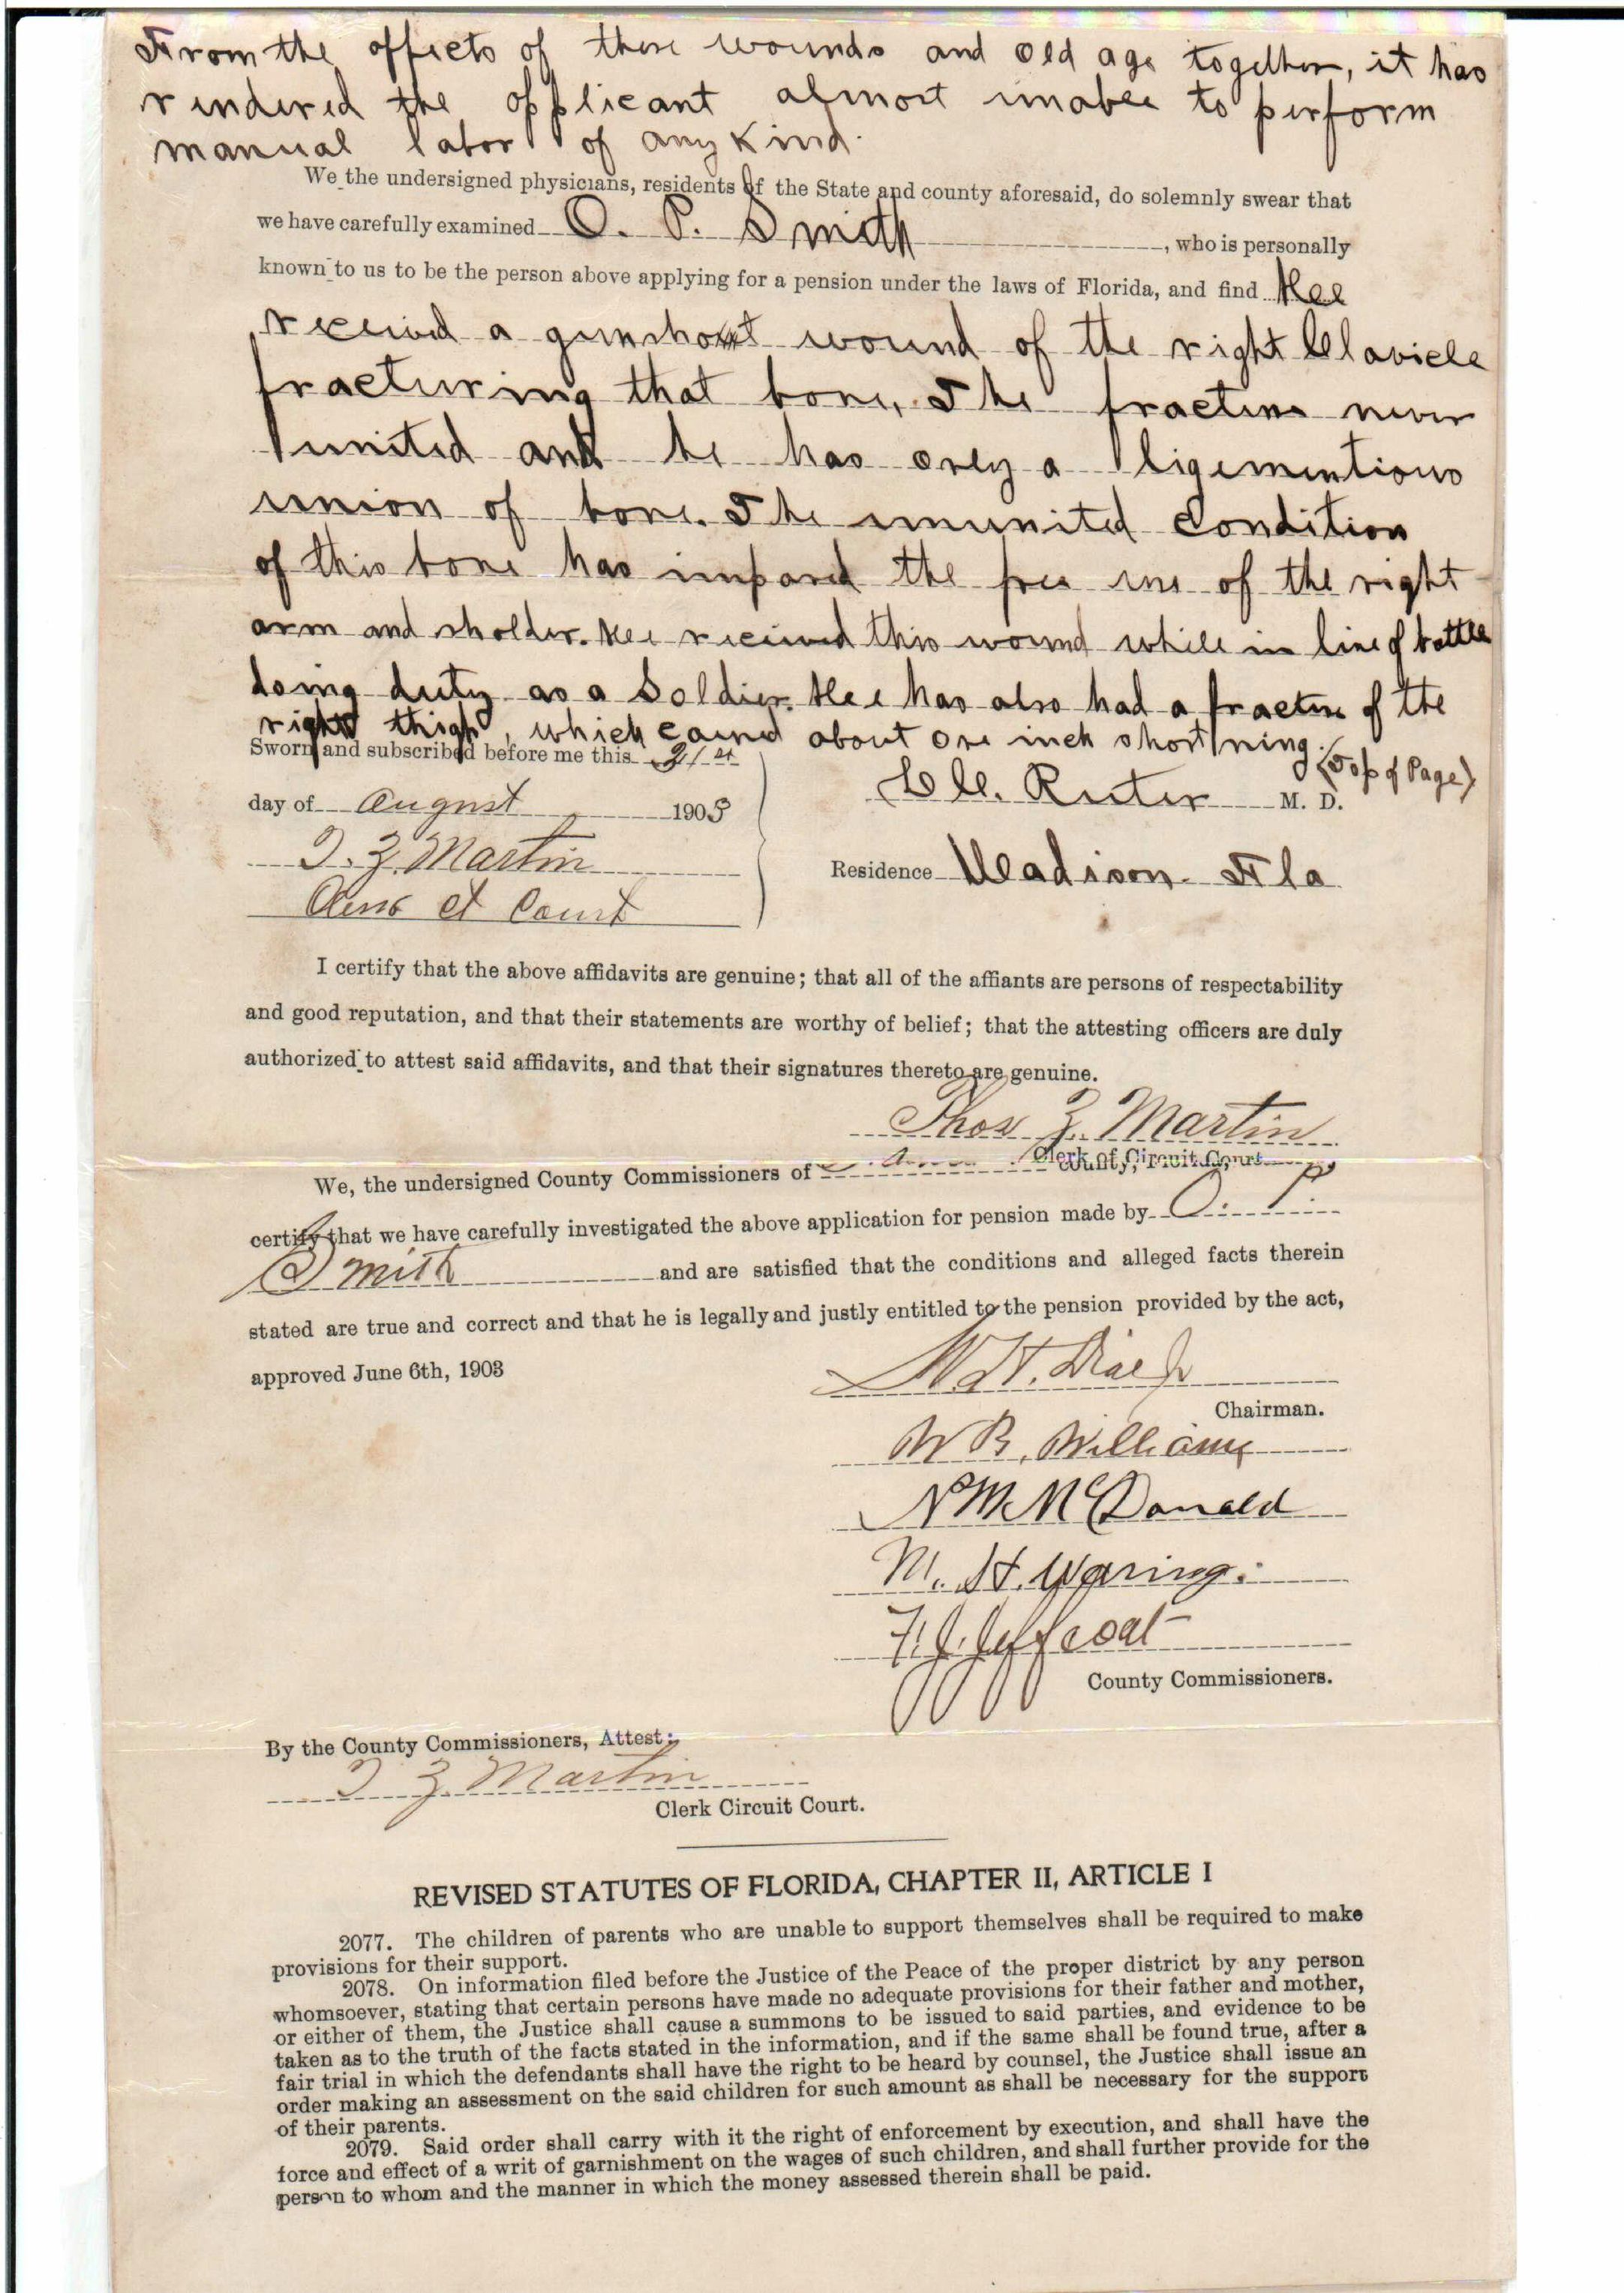 From the effects of these wounds and old age together, it has
rendered the applicant almost unable to perform
manual labor of any kind.
We the undersigned physicians, residents of the State and county aforesaid, do solemnly swear that
we have carefully examined O. P. Smith, who is personally
known to us to be the person above applying for a pension under the laws of Florida, and find Hee
received a gunshout wound of the right Clavicle
fracturing that bone, The fracture never
united and he has only a ligementious
union of bone. The ununited Condition
of this bone has impared the free use of the right
arm and sholder. Hee received this wound while in line of battle
doing duty as a Soldier. Hee has also had a fracture of the
right thigh, which caused about one inch shortning. (Top of Page)
Sworn and subscribed before me this 31st
day of August 1903
T. Z. Martin
Court
M. D.
Residence Madison Fla
I certify that the above affidavits are genuine; that all of the affiants are persons of respectability
and good reputation, and that their statements are worthy of belief; that the attesting officers are duly
authorized to attest said affidavits, and that their signatures thereto are genuine.
Thos Z. Martin
Clerk of Circuit Court
We, the undersigned County Commissioners of county,
certify that we have carefully investigated the above application for pension made by O. P.
Smith and are satisfied that the conditions and alleged facts therein
stated are true and correct and that he is legally and justly entitled to the pension provided by the act,
approved June 6th, 1903
Chairman.
W B. Williams
N M McDonald
M. H. Waring.
F. J. Jeffcoat
County Commissioners.
By the County Commissioners, Attest:
T Z. Martin
Clerk Circuit Court.
REVISED STATUTES OF FLORIDA, CHAPTER II, ARTICLE I
2077. The children of parents who are unable to support themselves shall be required to make
provisions for their support.
2078. On information filed before the Justice of the Peace of the proper district by any person
whomsoever, stating that certain persons have made no adequate provisions for their father and mother,
or either of them, the Justice shall cause a summons to be issued to said parties, and evidence to be
taken as to the truth of the facts stated in the information, and if the same shall be found true, after a
fair trial in which the defendants shall have the right to be heard by counsel, the Justice shall issue an
order making an assessment on the said children for such amount as shall be necessary for the support
of their parents.
2079. Said order shall carry with it the right of enforcement by execution, and shall have the
force and effect of a writ of garnishment on the wages of such children, and shall further provide for the
person to whom and the manner in which the money assessed therein shall be paid.